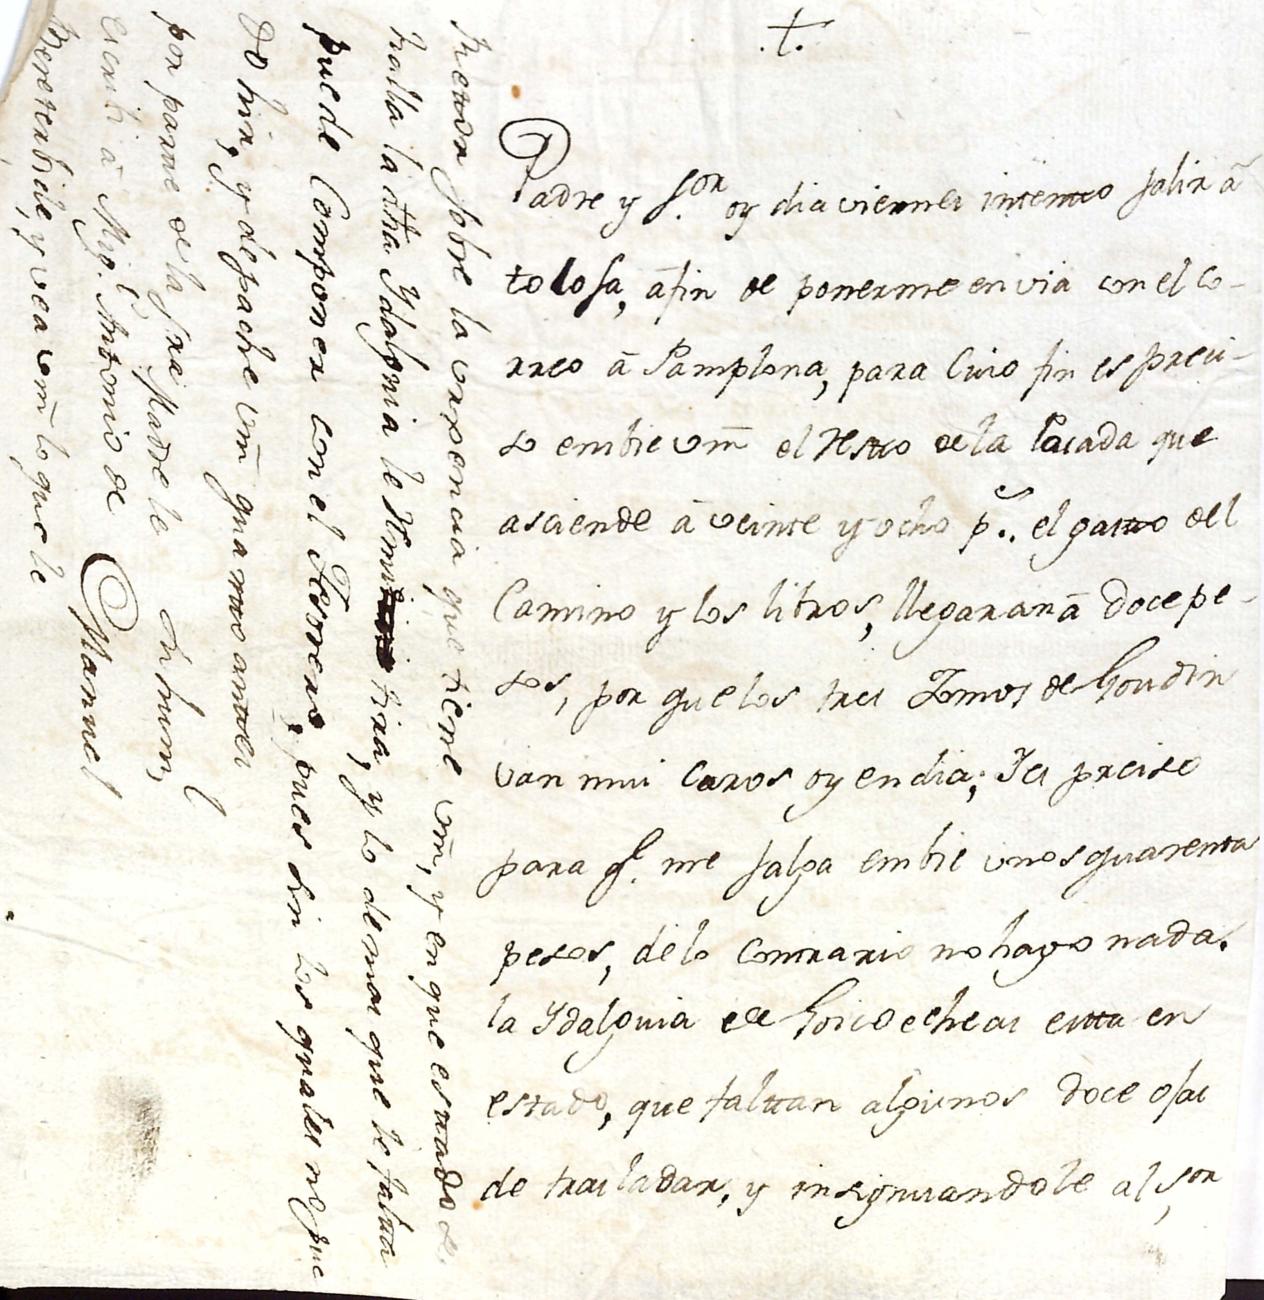 +
Padre y S.or oy dia viernes intento salir â
tolosa, afin de ponerme en via con el co-
rreo â Pamplona, para Cuio fin es preci-
so embie vm̃ el Resto de la que
asciende â veinte y ocho p.s el gasto del
Camino y los libros, llegaran â doce pe-
sos, por que los tres Tomos de Goudin
van mui caros oy en dia; Yes preciso
para q.e me salga embie unos quarenta
pesos, de lo contrario no hago nada.
la Ydalguia de Goicoecheas estta en
estado, que falttan algunos doce ojas
de trasladar, y insignuandole al S.or
Retor sobre la urxencia que tiene vm̃, y en que estado se
halla la dtha Ydalguia le hira, y lo demas que le faltta
puede Componer con el Thesorero, pues sin los quales no pue
do hir, y despache vm̃ quanto antes
por parte de la Sra Madre le
escribi â Mig.l Antonio de
Berterbide, y vea vm̃ lo que le
Su hum.l
Manuel